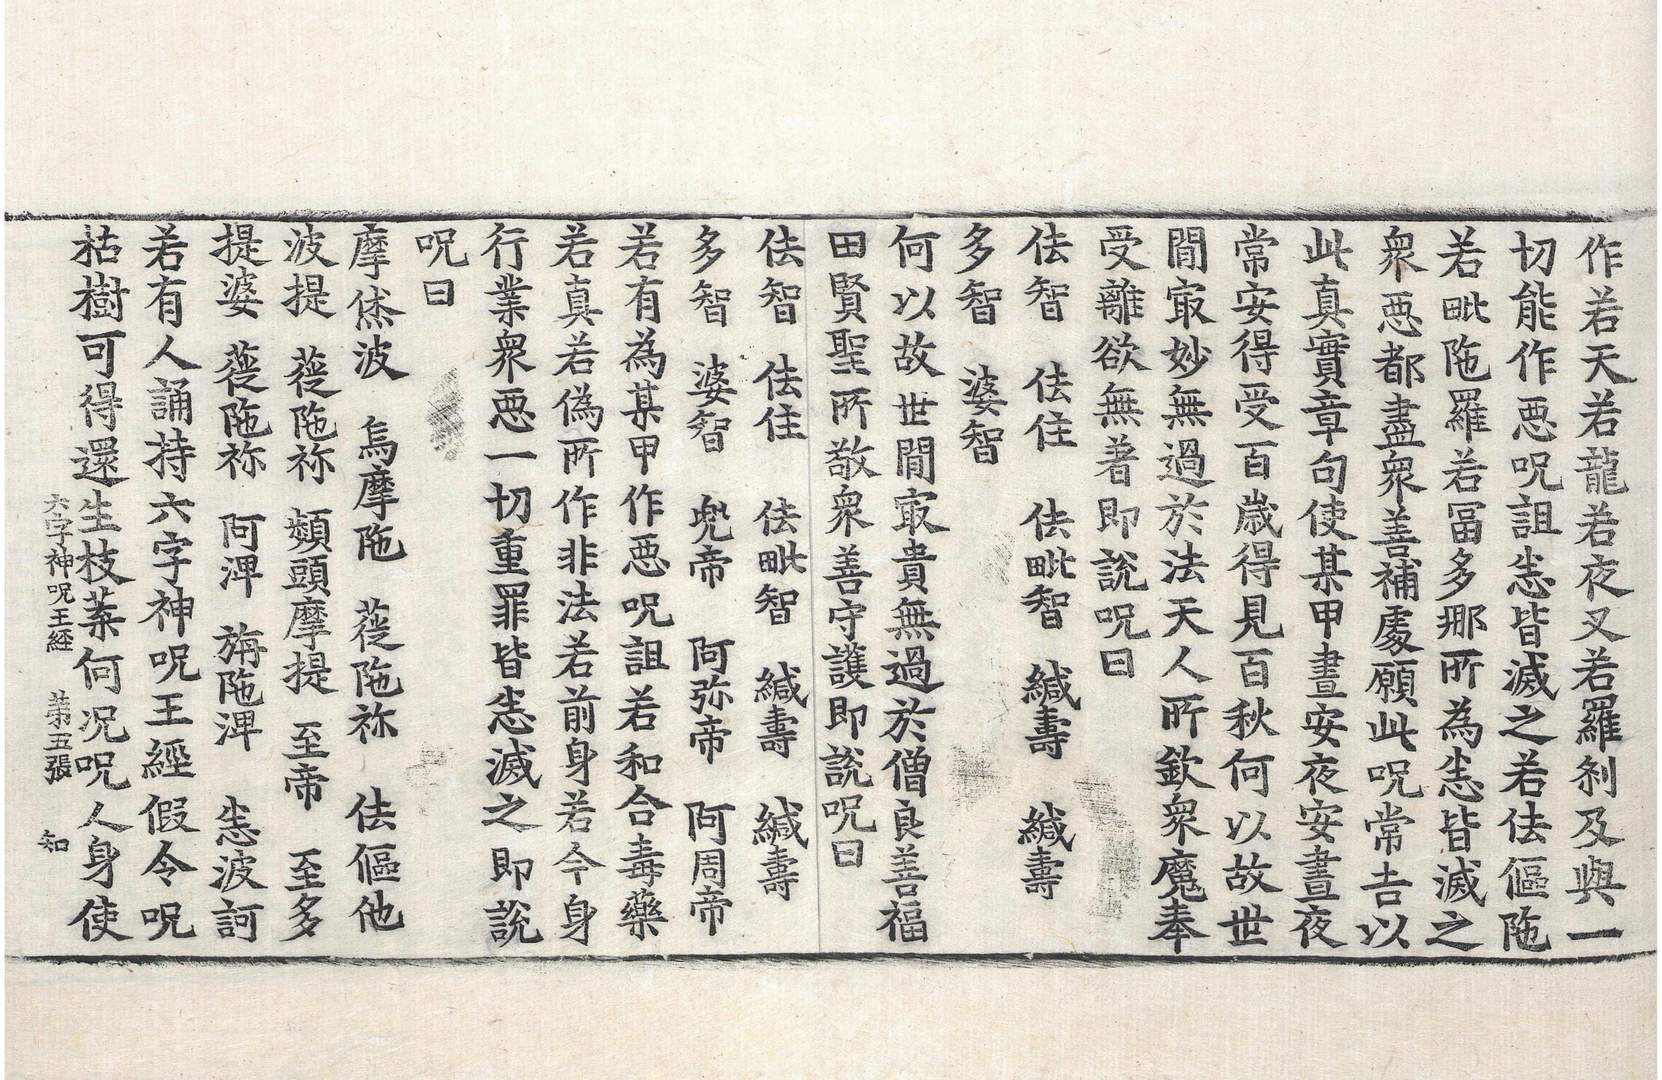 作若天若龍若夜叉若羅刹及與一
切能作惡呪詛悉皆滅之若佉傴陁
若毗陁羅若冨多那所為悉皆滅之
衆惡都盡衆善補處願此呪常吉以
此真實章句使某甲晝安夜安晝夜
常安得受百歲得見百秋何以故世
閒㝡妙無過於法天人所欽衆魔奉
受離欲無著即說呪曰
佉智　佉住　佉毗智　緘壽　緘壽
多智　婆智
何以故世閒㝡貴無過於僧良善福
田賢聖所敬衆善守護即說呪曰
佉智　佉住　佉毗智　緘壽　緘壽
多智　婆智　兠帝　阿弥帝　阿周帝
若有為某甲作惡呪詛若和合毒藥
若真若偽所作非法若前身若今身
行業衆惡一切重罪皆悉滅之即說
呪曰
摩烋波　烏摩陁　蓰陁祢　佉傴他
波提　蓰陁祢　頞頭摩提　至帝　至多
提婆　蓰陁祢　阿渒　旃陁渒　悉波訶
若有人誦持六字神呪王經假令呪
枯樹可得還生枝葉何况呪人身使
六字神呪王經　苐五張　知